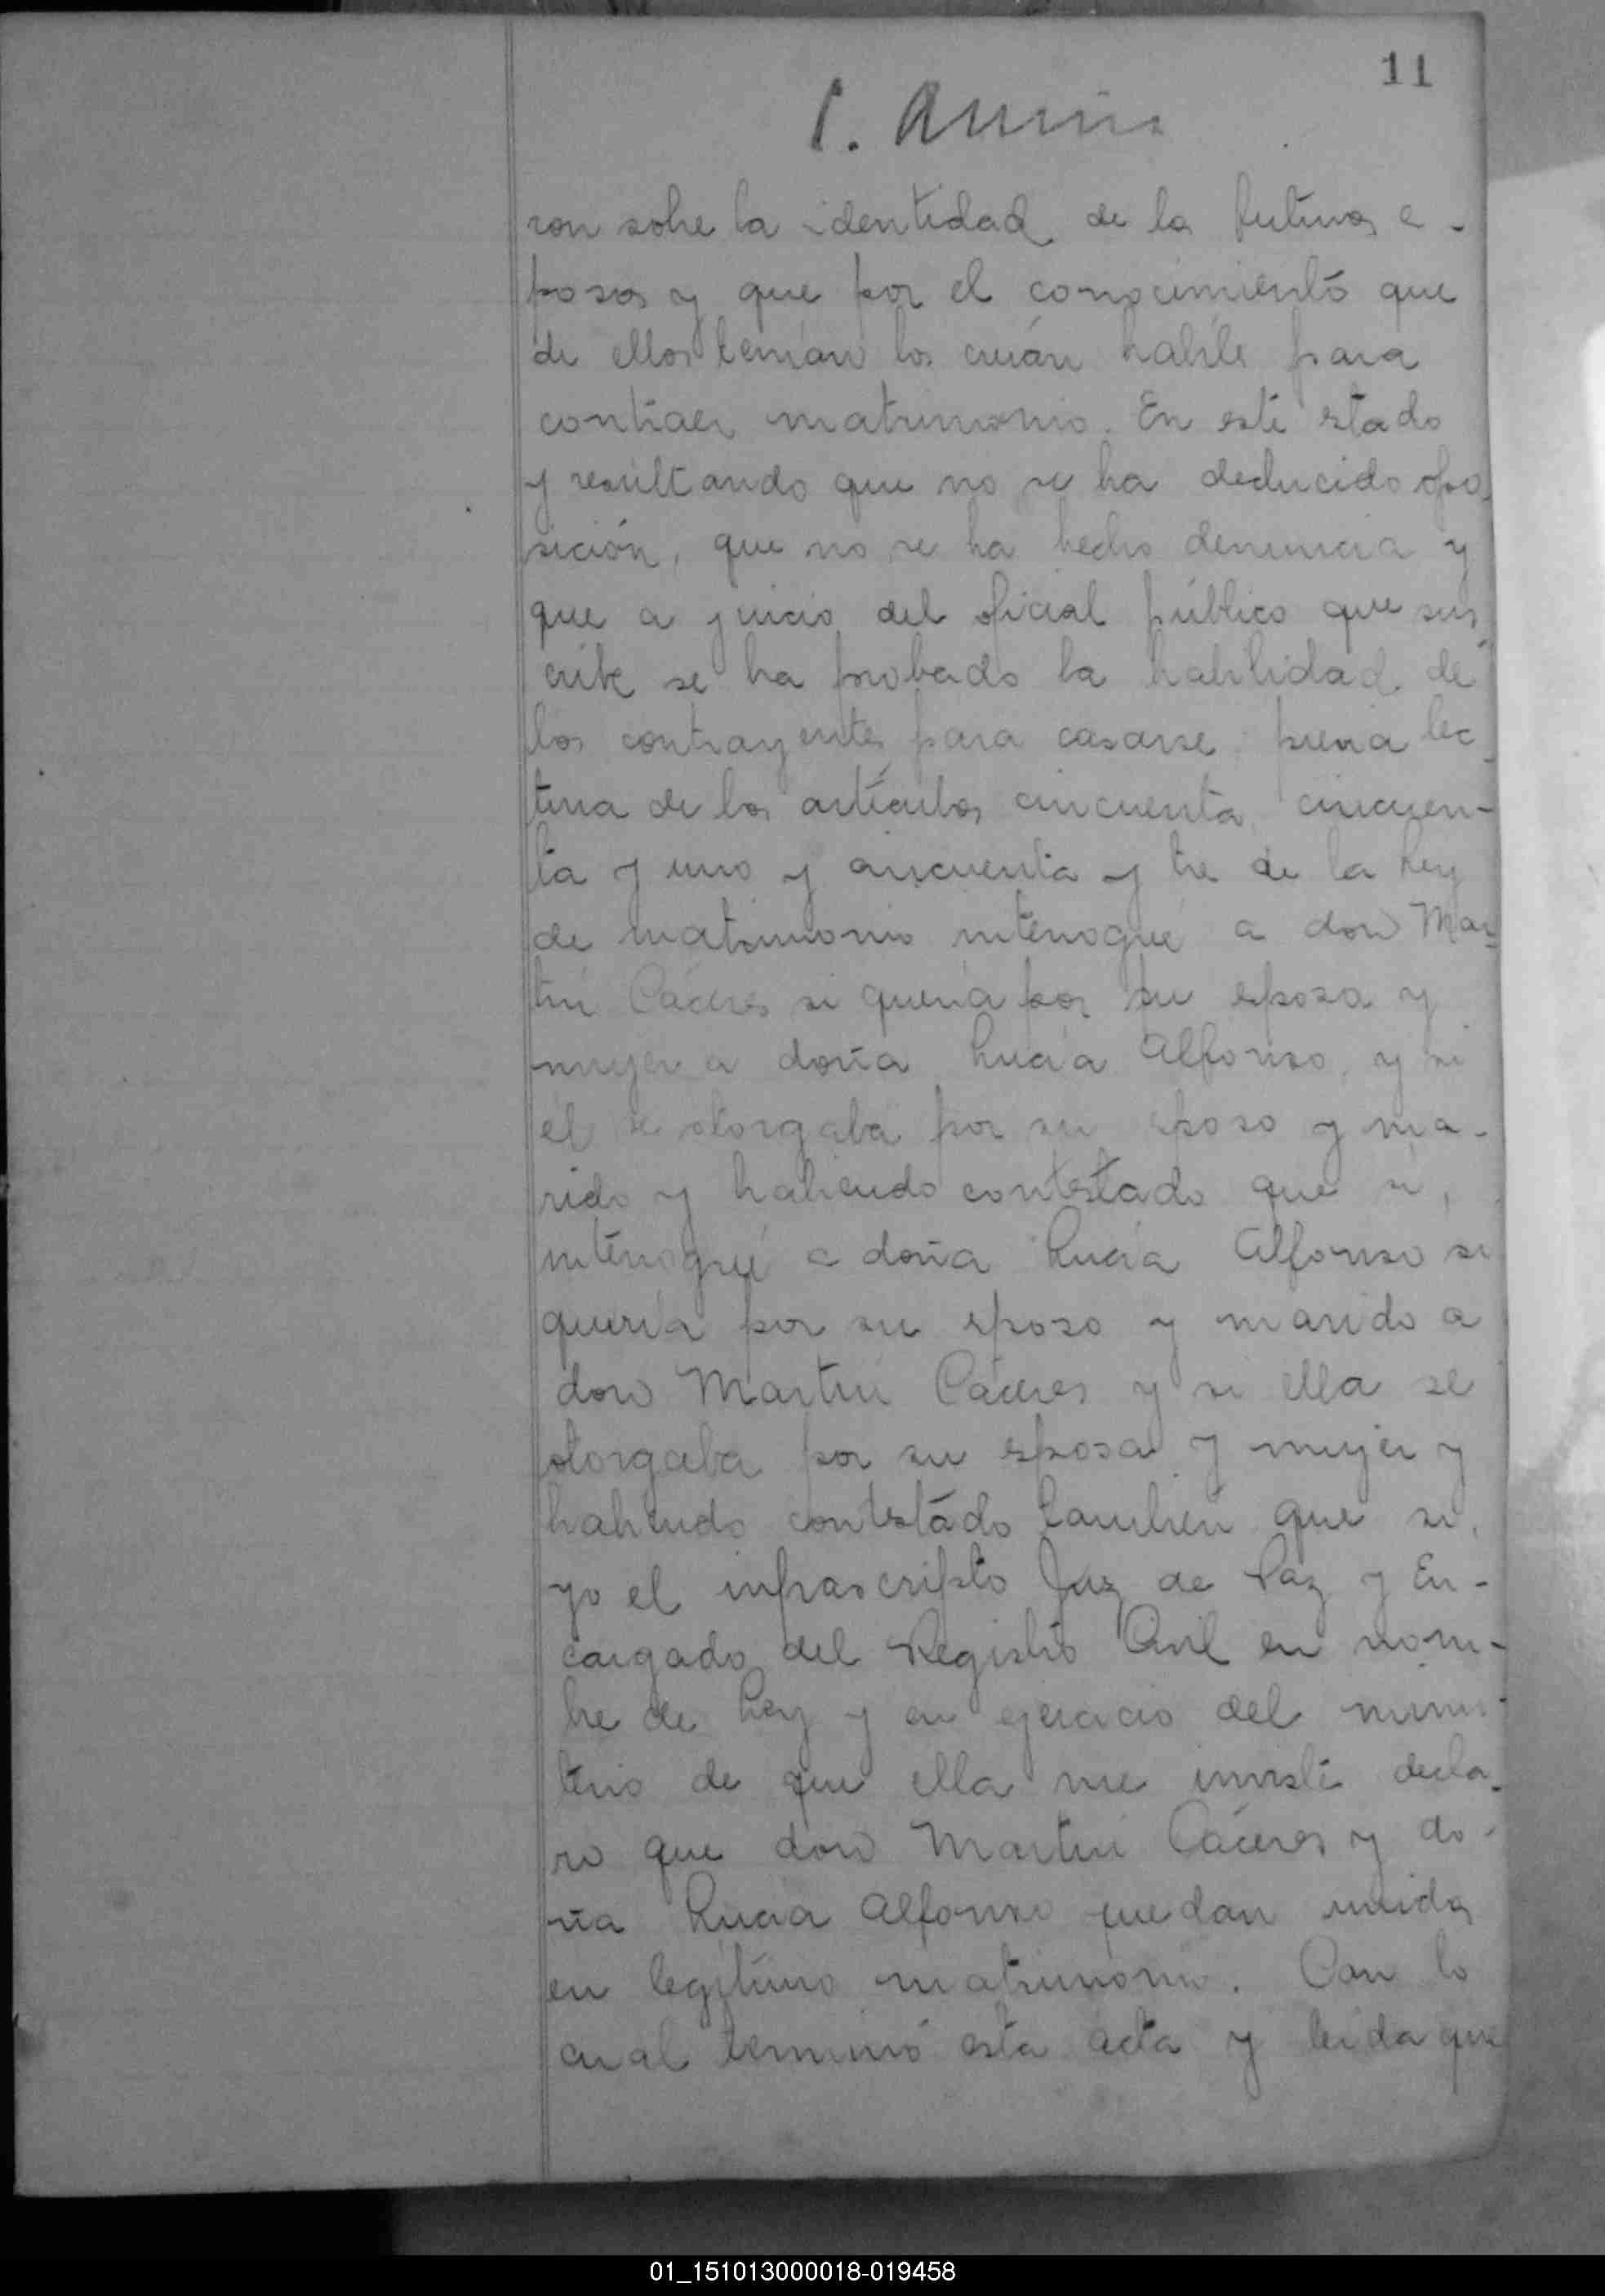 11
ron sobre la identidad de los futuros e-
posos y que por el conocimiento que
de ellos tenían los creían hábiles para
contraer matrimonio. En este estado
y resultando que no se ha deducido opo-
sición, que no se ha hecho denuncia y
que a juicio del oficial público que sus-
cribe se ha probado la habilidad de
los contrayentes para casarse, previa lec-
tura de los artículos cincuenta, cincuen-
ta y uno y cincuenta y tres de la Ley
de matrimonio interrogué a don Mar-
tín Cáceres si quería por su esposa y
mujer a doña Lucía Alfonso, y si
él se otorgaba por su esposo y ma-
rido y habiendo contestado que sí,
interrogué a doña Lucía Alfonso si
quería por su esposo y marido a
don Martín Cáceres y si ella se
otorgaba por su esposa y mujer y
habiendo contestado también que sí,
yo el infrascripto Juez de Paz y En-
cargado del Registro Civil en nom-
bre de Ley y en ejercicio del minis-
terio de que ella me inviste decla-
ro que don Martín Cáceres y do-
ña Lucía Alfonso quedan unidos
en legítimo matrimonio. Con lo
cual terminó esta acta y leída que
01_151013000018-019458